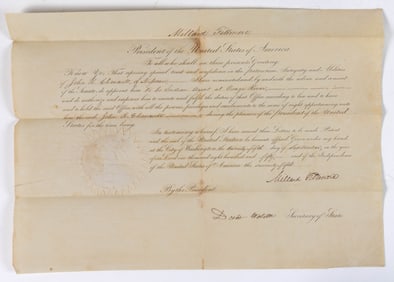 Millard Fillmore
President of the United States of America
To all who shall see these presents, Greeting:
Know Ye, That reposing special trust and confidence in the Integrity and Abilities
of John R. of I have nominated, and by and with the advice and consent
of the Senate, do appoint him to be Indian Agent at
and do authorize and empower him to execute and fulfil the duties of that Office according to law and to have
and to hold the said Office with all the powers, privileges and emoluments to the same of right appertaining unto
him the said John R. during the pleasure of the President of the United
States for the time being.
In testimony whereof, I have caused these Letters to be made Patent
and the seal of the United States to be hereunto affixed. Given under my hand
at the City of Washington the day of September, in the year
of our Lord one thousand eight hundred and fifty and of the Independence
of the United States of America the Seventy fifth
Millard Fillmore
By the President
Secretary of State